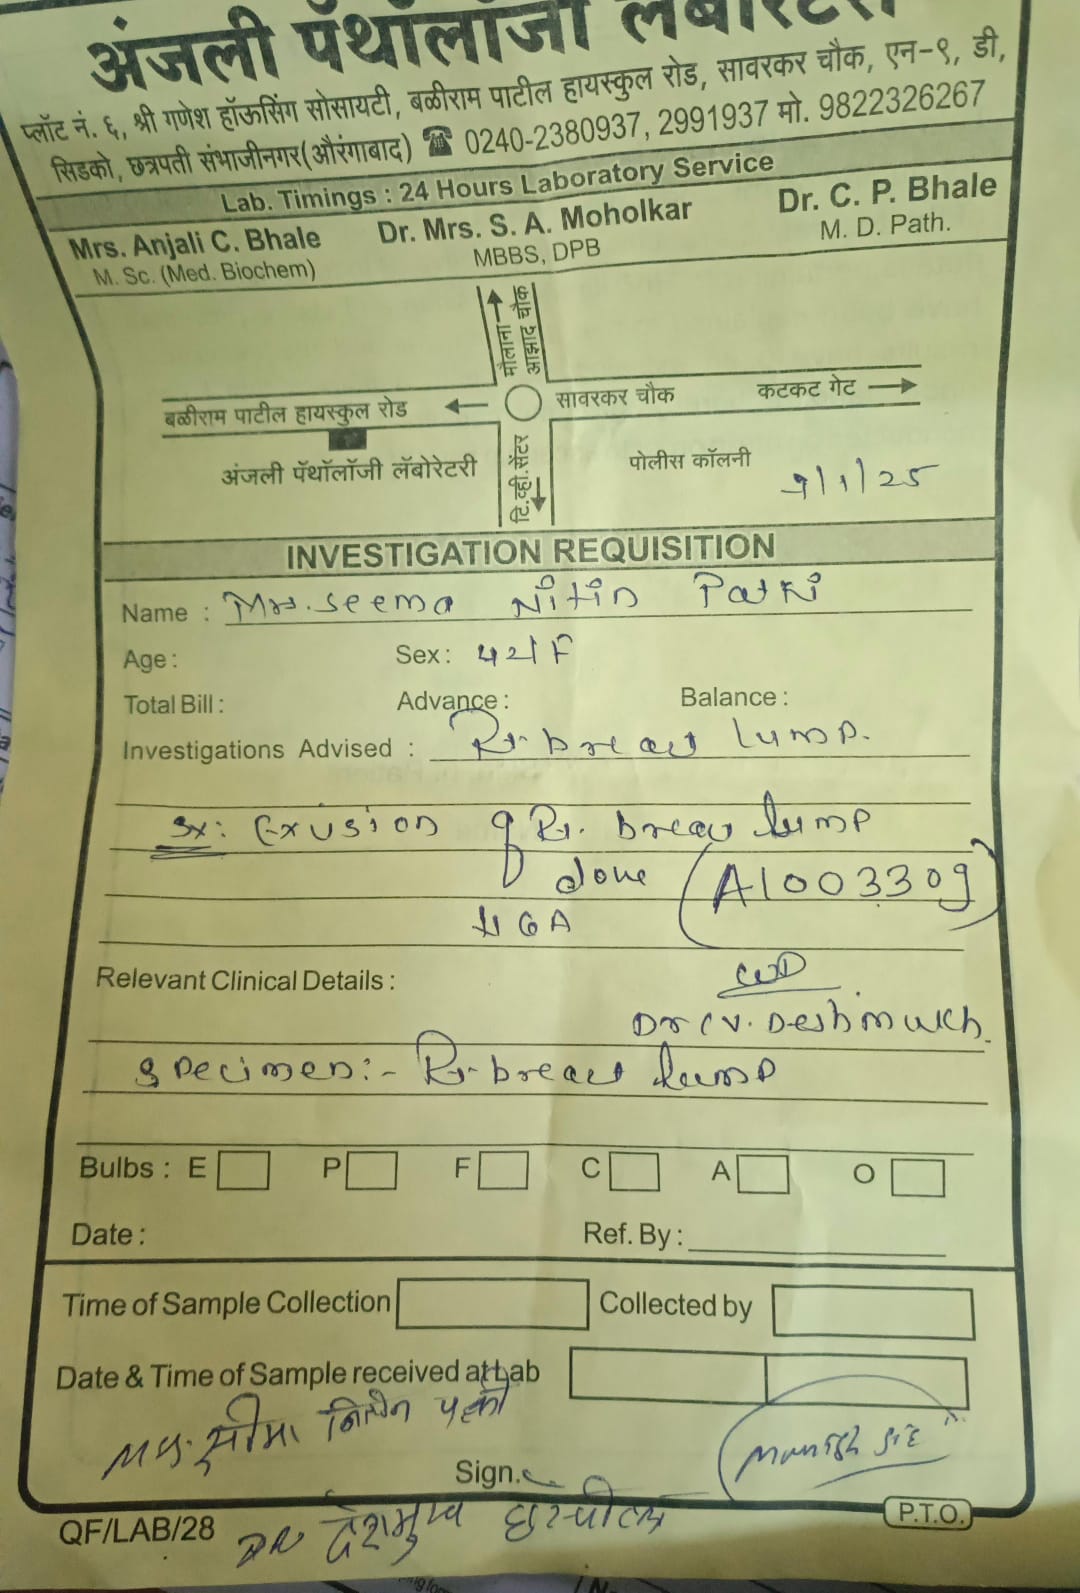 अंजली पॅथॉलॉजी लॅबोरेटरी
प्लॉट नं. ६, श्री गणेश हॉऊसिंग सोसायटी, बळीराम पाटील हायस्कुल रोड, सावरकर चौक, एन-९, डी,
सिडको, छत्रपती संभाजीनगर(औरंगाबाद) ☎ 0240-2380937, 2991937 मो. 9822326267
Lab. Timings : 24 Hours Laboratory Service
Mrs. Anjali C. Bhale Dr. Mrs. S. A. Moholkar Dr. C. P. Bhale
M. Sc. (Med. Biochem) MBBS, DPB M. D. Path.
मौलाना
आझाद चौक
बळीराम पाटील हायस्कुल रोड सावरकर चौक कटकट गेट
अंजली पॅथॉलॉजी लॅबोरेटरी टि.व्ही.सेंटर पोलीस कॉलनी
9/1/25
INVESTIGATION REQUISITION
Name : Mrs. Seema Nitin Patki
Age : Sex : 42/F
Total Bill : Advance : Balance :
Investigations Advised : Rt. breast lump.
Sx: Excision of Rt. breast lump
done (A1003309)
GA
Relevant Clinical Details :
Dr C.V. Deshmukh
Specimen:- Rt. breast lump
Bulbs : E P F C A O
Date : Ref. By :
Time of Sample Collection Collected by
Date & Time of Sample received at Lab
सीमा नितीन पत्की
Sign.
QF/LAB/28 P.T.O.
देशमुख हॉस्पीटल